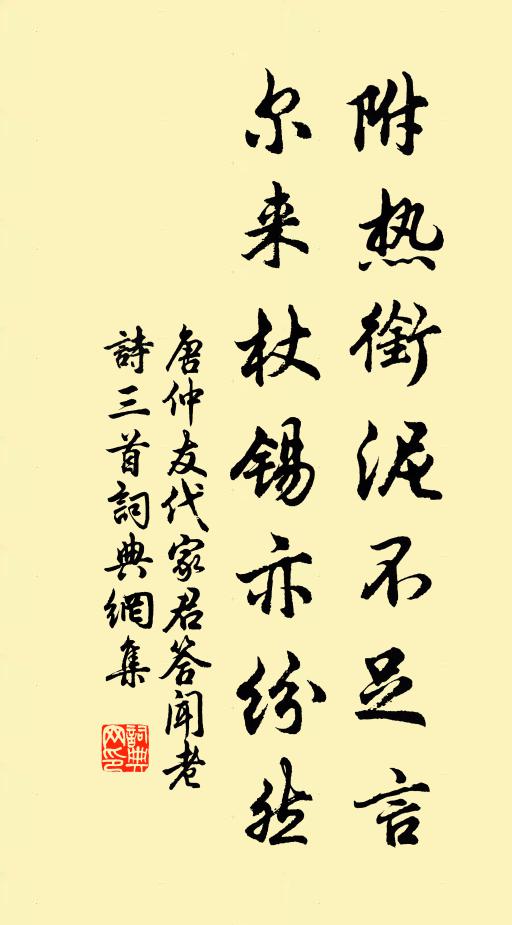 附热銜泥不足言
尔来杖锡亦纷然
唐仲友代家君答闻老
詩三首詞典網集
詞典
网印